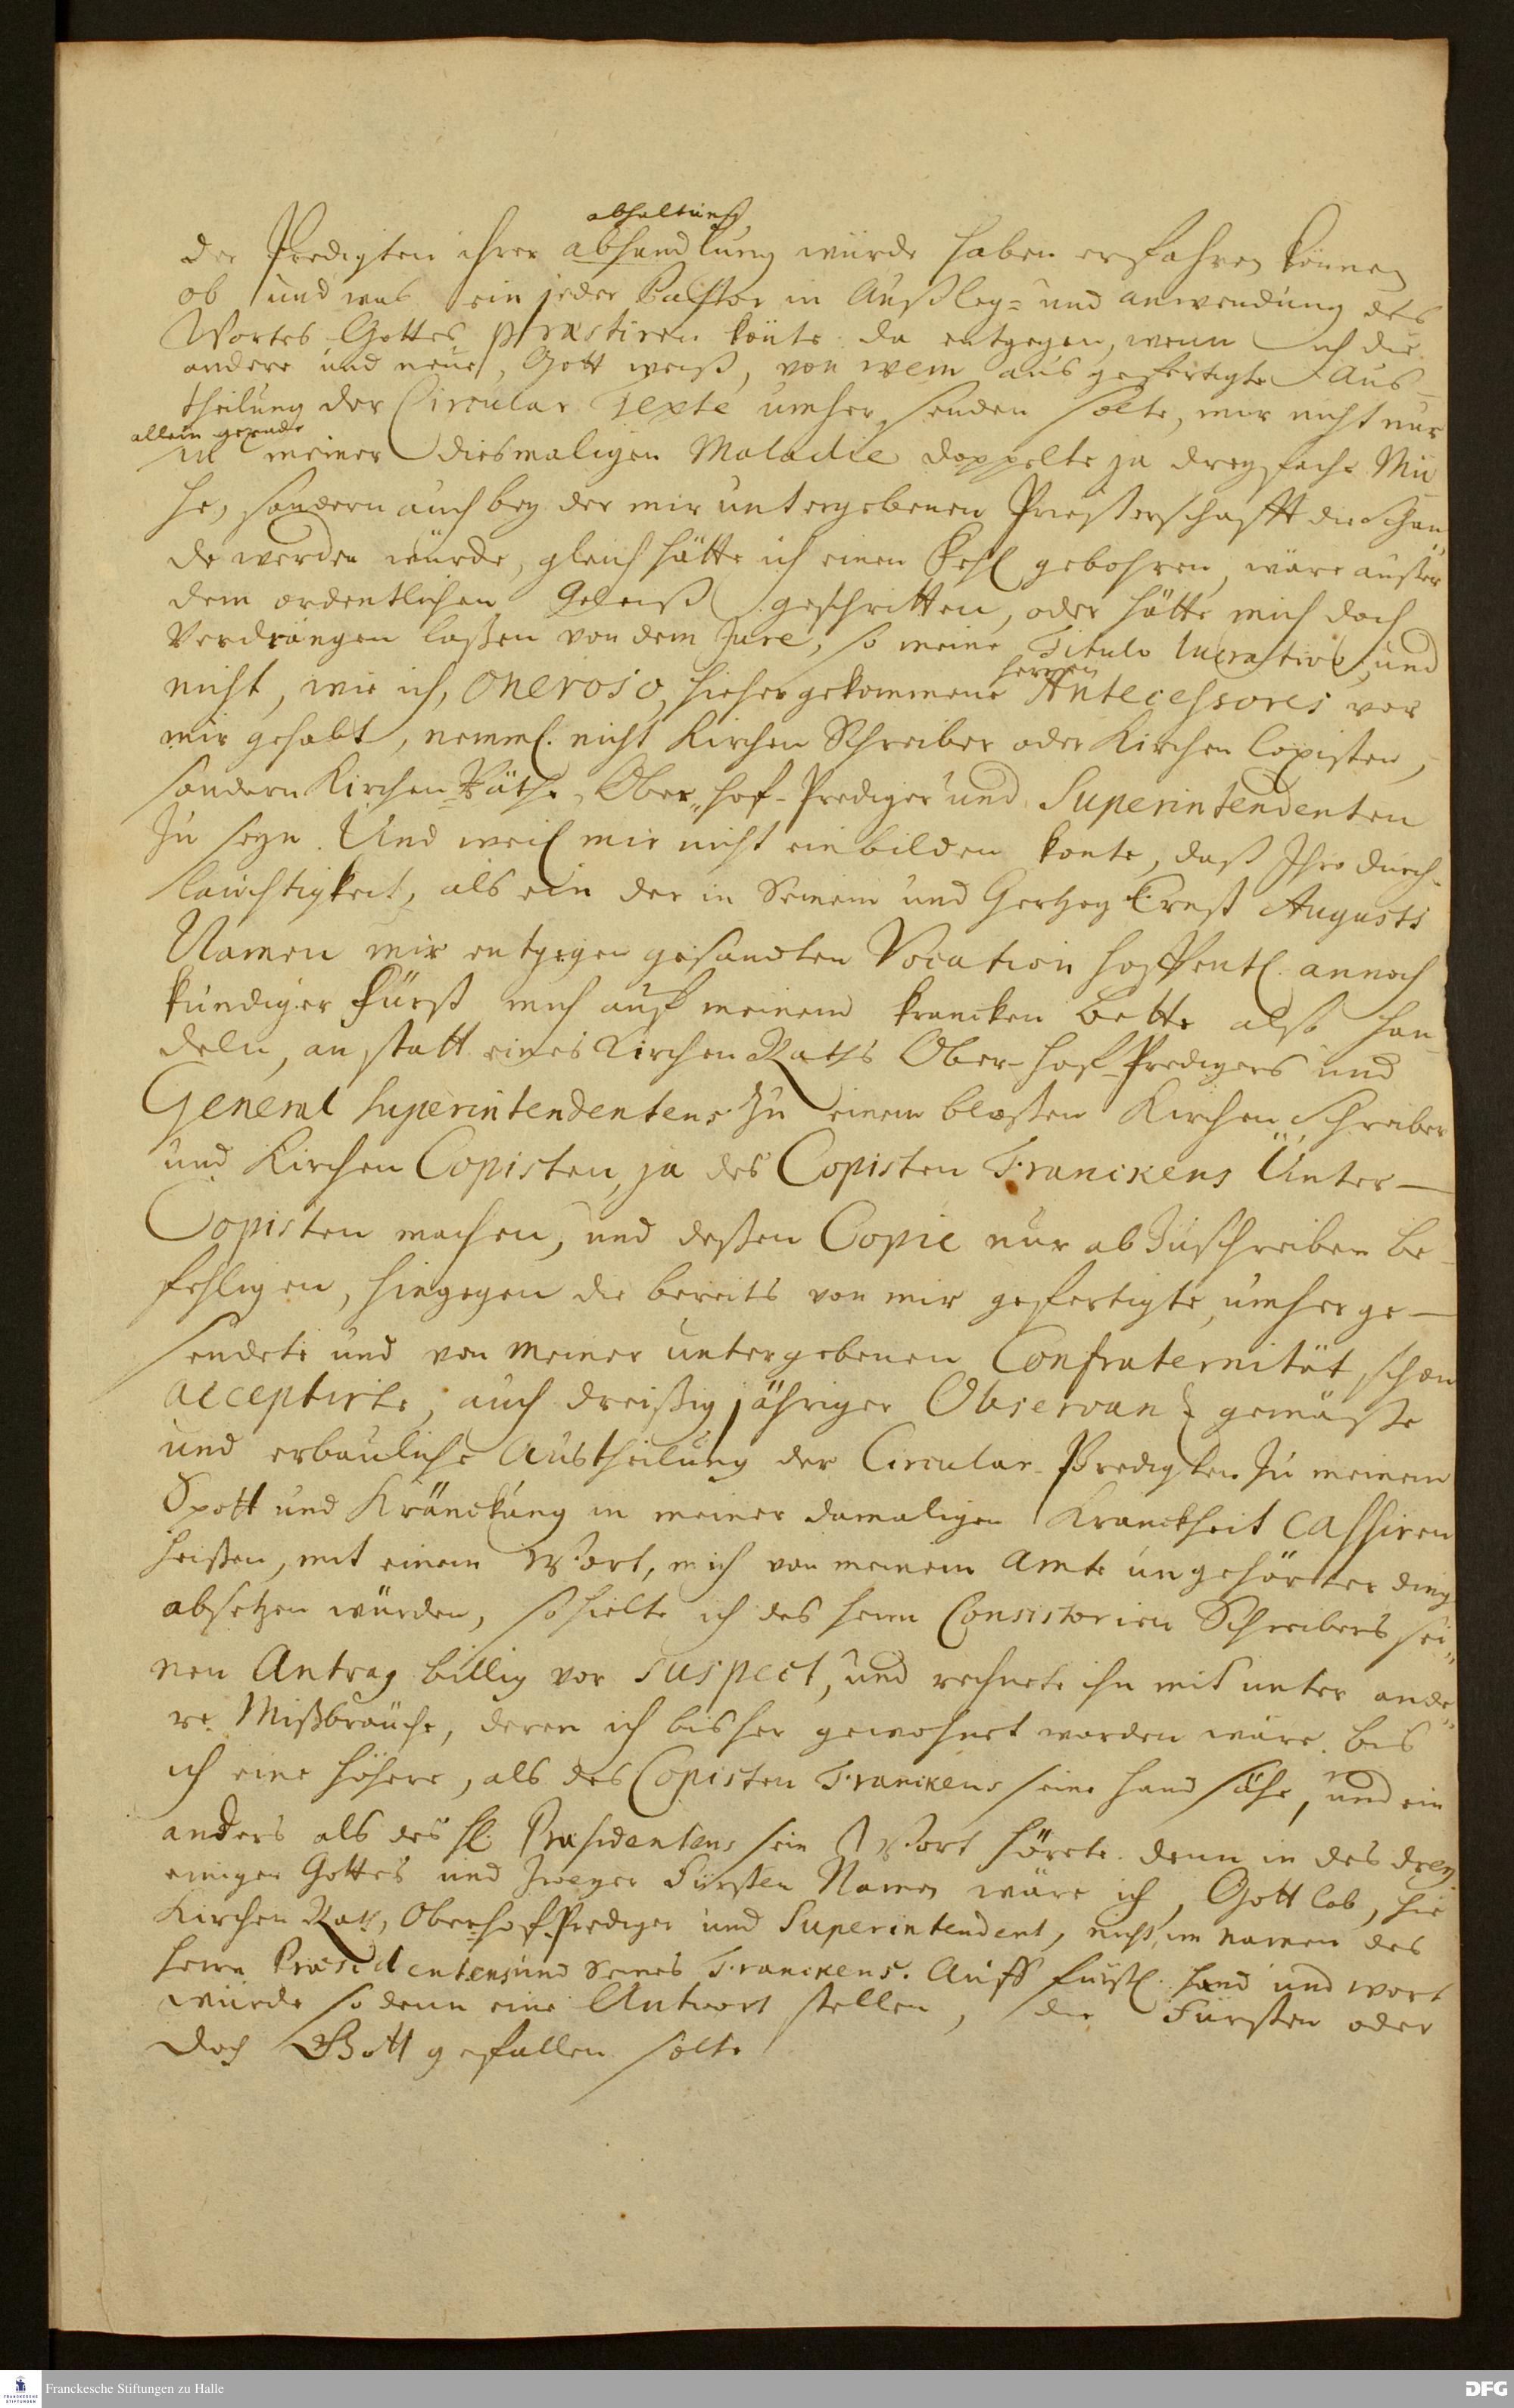 abhaltung
der Predigten ihrer abhandlung würde haben erfahren können
ob und was ein jeder Pastor in Außleg- und anwendung des
Wortes Gottes præstiren könte. da entgegen, wenn ich die
andere und neue, Gott weiß, von wem ausgefertigte Aus-
theilung der Circular Texte umher senden solte, mir nicht nur
allein gerade
in meiner diesmaligen Maladie doppelte ja dreyfache Mü
he, sondern auch bey der mir untergebenen Priesterschafft die Schan
de werden würde, gleich hätte ich einen Fehl gebohren, wäre außer
dem ordentlichen Geleiß geschritten, oder hätte mich doch
verdrängen laßen von dem Jure, so meine Titulo lucrativo, und
herren
nicht, wie ich, oneroso, hieher gekommene Antecessores vor
mir gehabt, neml. nicht Kirchen Schreiber oder Kirchen Copisten,
sondern Kirchen-Räthe, Ober-hof-Prediger und Superintendenten
zu seyn. Und weil mir nicht einbilden konte, daß Ihro durch-
lauchtigkeit, als ein der in Seinem und Hertzog Ernst Augusts
Namen mir entgegen gesandten Vocation hoffentl. annoch
kundiger Fürst mich auf meinem krancken Bette also han-
deln, anstatt eines Kirchen Raths Ober-hof-Predigers und
General Superintendentens zu einem blossen Kirchen Schreiber
und Kirchen Copisten, ja des Copisten Franckens Unter-
Copisten machen, und deßen Copie nur abzuschreiben be-
fehligen, hingegen die bereits von mir gefertigte, umherge-
sendete und von meiner untergebenen Confraternität schon
acceptirte, auch dreißig jähriger Observanz gemäße
und erbauliche Austheilung der Circular-Predigten zu meinem
Spott und Kränckung in meiner damaligen Kranckheit cassiren
heißen, mit einem Wort, mich von meinem Amte ungehörter ding
absetzen würden, so hielte ich des herrn Consistorien Schreibers sei-
nen Antrag billig vor suspect, und rechnete ihn mit unter ande-
re Mißbräuche, deren ich bisher gewohnt worden wäre. bis
ich eine höhere, als des Copisten Franckens seine hand sähe, und ein
anders als des H. Præsidentens sein Wort hörete. denn in des drey
einigen Gottes und zweyer Fürsten Namen wäre ich, Gott lob, hie
Kirchen Rath, Ober-hof-Prediger und Superintendent, nicht im namen des
herrn Præsidentens und seines Franckens. Auff fürstl. hand und wort
würde so denn eine Antwort stellen, die Fürsten oder
doch Gott gefallen solte
Franckesche Stiftungen zu Halle
DFG